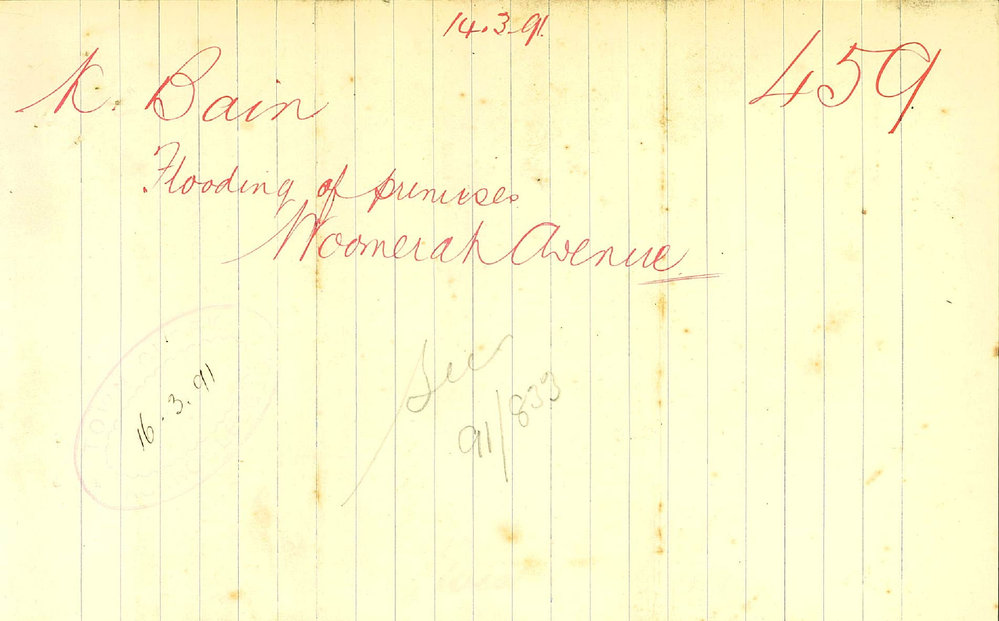 14.3.91
K. Bain
459
Flooding of premises
Woomerah Avenue
16.3.91
See
91/833